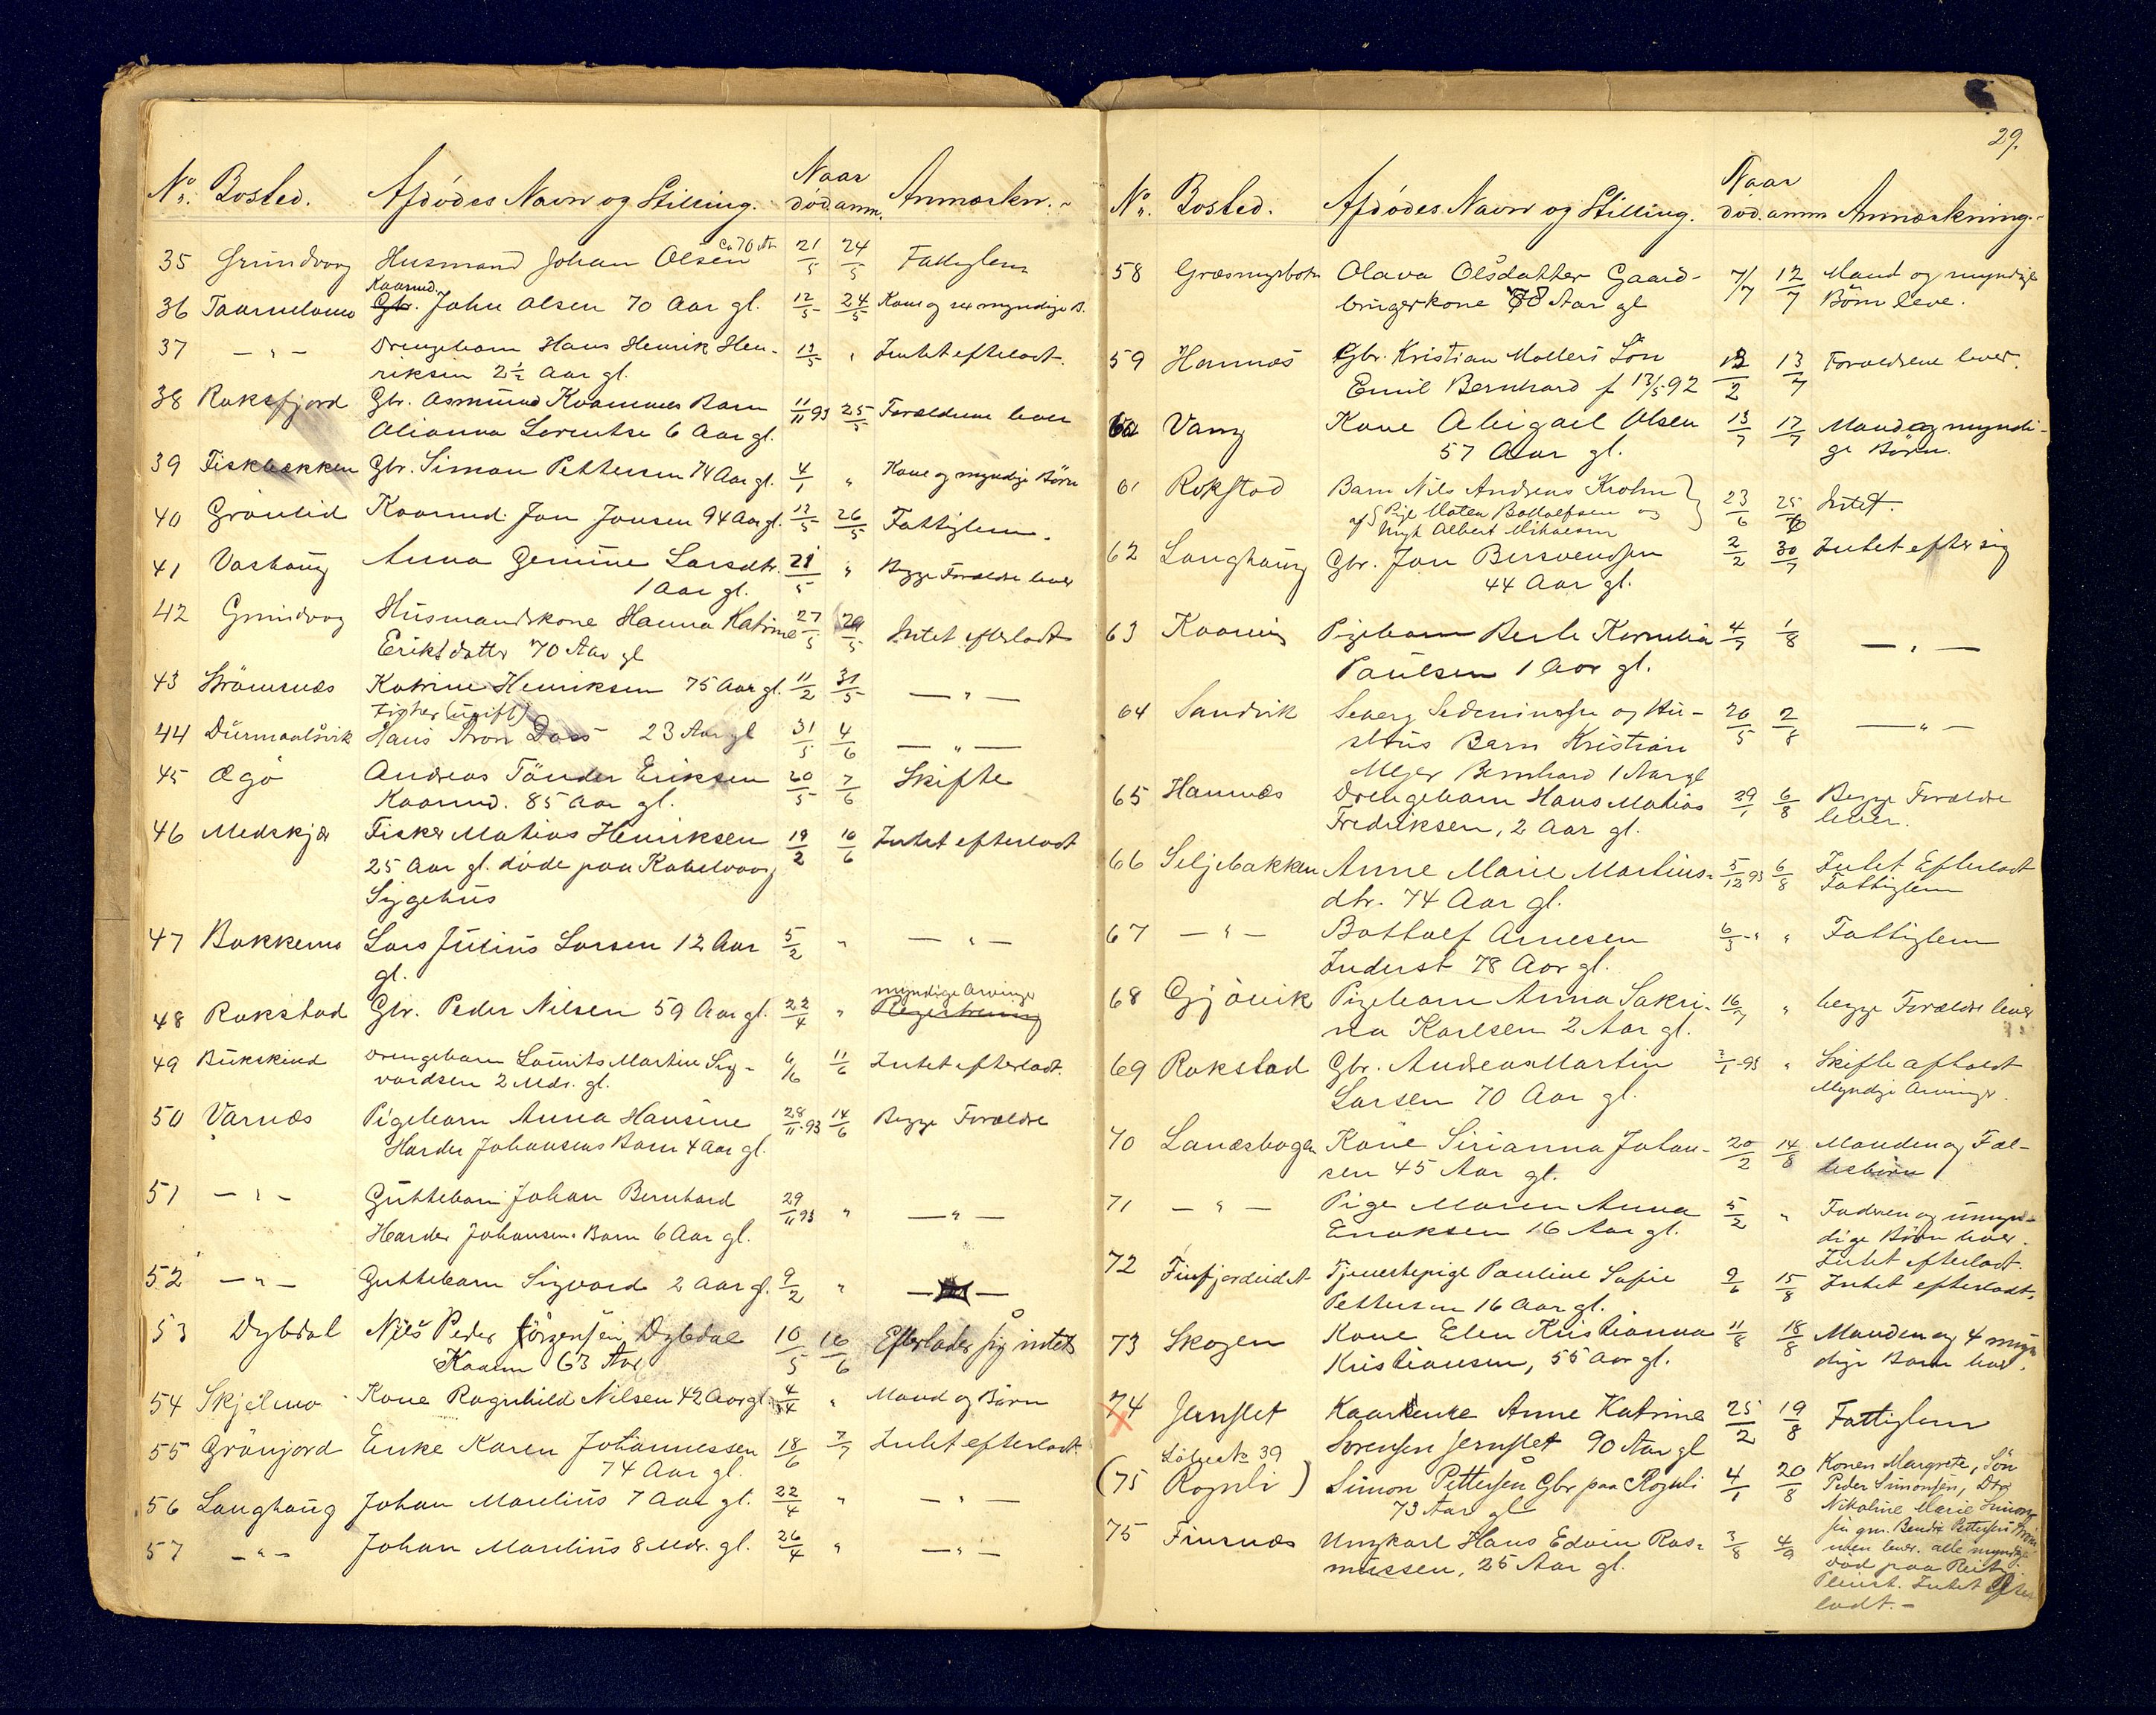 Naar
No. Bosted. Afdödes Navn og Stilling. död. anm. Anmærkn.
35 Grundvaag Husmand Johan Olsen ca 70 Aar 21/5 24/5 Fattiglem
Kaarmd.
36 Taarnelvmo Gbr. John Olsen 70 Aar gl. 12/5 24/5 Kone og sex myndige B.
37 — " — Drengebarn Hans Henrik Hen-
riksen 2½ Aar gl. 13/5 " Intet efterladt.
38 Roksfjord Gbr. Asmund Kvammes Barn 11/11 93 25/5 Forældrene lever
Olianna Lorentse 6 Aar gl.
39 Fiskbækken Gbr. Simon Pettersen 74 Aar gl. 4/1 " Kone og myndige Börn
40 Grönlid Kaarmd. Jon Jonsen 94 Aar gl. 12/5 26/5 Fattiglem.
41 Vashaug Anna Gemine Larsdtr. 21/5 " Begge Forældre lever
1 Aar gl.
42 Grundvog Husmandskone Hanna Katrine 27/5 29/5 Intet efterladt
Eriksdatter 70 Aar gl
43 Strömsnæs Katrine Henriksen 75 Aar gl. 11/2 31/5 — " —
Fisker (ugift)
44 Durmaalsvik Hans Aron Dass 23 Aar gl 31/5 4/6 — " —
45 Ægö Andreas Tönder Eriksen 20/5 7/6 Skifte
Kaarmd. 85 Aar gl.
46 Medskjær Fisker Matias Henriksen 19/2 10/6 Intet efterladt
25 Aar gl. döde paa Kabelvaag
Sygehus
47 Bakkemo Lars Julius Larsen 12 Aar 5/2 " — " —
gl.
myndige Arvinger
48 Rokstad Gbr. Peder Nilsen 59 Aar gl. 22/4 " Registrering
49 Bukskind Drengebarn Laurits Martin Sig- 6/6 11/6 Intet efterladt.
vardsen 2 Mdr. gl.
50 Varnæs Pigebarn Anna Hansine 28/11 93 14/6 Begge Forældre
Harder Johansens Barn 4 Aar gl.
51 — " — Guttebarn Johan Bernhard 29/11 93 " — " —
Harder Johansens Barn 6 Aar gl.
52 — " — Guttebarn Sigvard 2 Aar gl. 9/2 "
53 Dybdal Nils Peder Jörgensen Dybdal 10/5 16/6 Efterlader sig intet
Kaarm 63 Aar
54 Skjelmo Kone Ragnhild Nilsen 42 Aar gl. 4/4 " Mand og Börn
55 Grönjord Enke Karen Johannessen 18/6 7/7 Intet efterladt.
74 Aar gl.
56 Langhaug Johan Marelius 7 Aar gl. 22/4 " — " —
57 — " — Johan Marelius 8 Mdr. gl. 26/4 " — " —
29.
Naar
No. Bosted. Afdödes Navn og Stilling. död. anm Anmærkning.
58 Græsmyrbotn Olava Olsdatter Gaard- 7/7 12/7 Mand og myndige
brugerkone 78 Aar gl Börn leve.
59 Hamnæs Gbr. Kristian Mollers Sön 12/2 13/7 Forældrene lever.
Emil Bernhard f 12/5 92
60 Vang Kone Abigael Olsen 13/7 17/7 Mand og myndi-
57 Aar gl. ge Börn.
61 Rokstad Barn Nils Andreas Krohn 23/6 25/7 Intet.
af Pige Maten Bottolfsen og
Ungk Albert Mikalsen
62 Langhaug Gbr. Jon Bersvendsen 2/2 30/7 Intet efter sig
44 Aar gl.
63 Kaarvig Pigebarn Berle Kornelia 4/7 1/8 — " —
Paulsen 1 Aar gl.
64 Sandvik 20/5 2/8 — " —
Barn Kristian
Mejer Bernhard 1 Aar gl
65 Hamnæs Drengebarn Hans Matias 29/1 6/8 Begge Forældre
Fredriksen, 2 Aar gl. lever.
66 Seljebakken Anne Marie Martins- 5/12 93 6/8 Intet Efterladt
dtr. 74 Aar gl. Fattiglem
67 — " — Bottolf Arnesen 6/3 " " Fattiglem
Inderst 78 Aar gl.
68 Gjövik Pigebarn Anna Sakri- 16/7 " begge Forældre lever
na Karlsen 2 Aar gl.
69 Rokstad Gbr. Andreas Martin 2/1 93 " Skifte afholdt
Larsen 70 Aar gl. Myndige Arvinger.
70 Lanæsbogen Kone Sirianna Johan- 20/2 14/8 Manden og Fæl-
sen 45 Aar gl. lesbörn
71 — " — Pige Maren Anna 5/2 " Faderen og umyn-
Enoksen 16 Aar gl. dige Börn lever.
Intet efterladt.
72 Finfjordeidet Tjenestepige Pauline Sofie 9/6 15/8 Intet efterladt.
Pettersen 16 Aar gl.
73 Skogen Kone Elen Kristianna 11/8 18/8 Manden og 4 myn
Kristiansen, 55 Aar gl. dige Barn lever.
74 Jernslet Kaarenke Anne Katrine 25/2 19/8 Fattiglem
Sorensen Jernslet 90 Aar gl
Löbe No 39
(75 Rognli) Simon Pettersen Gbr paa Rognli 4/1 20/8 Konen Margrete, Sön
73 Aar gl Peder Simonsen, Dtr
Nikoline Marie Simon
sen gm. Bendix Pettersen
lever. alle myndige.
75 Finsnæs Ungkarl Hans Edvin Ras- 3/8 4/9 död paa Reits
mussen, 25 Aar gl. Intet Efter
ladt.-